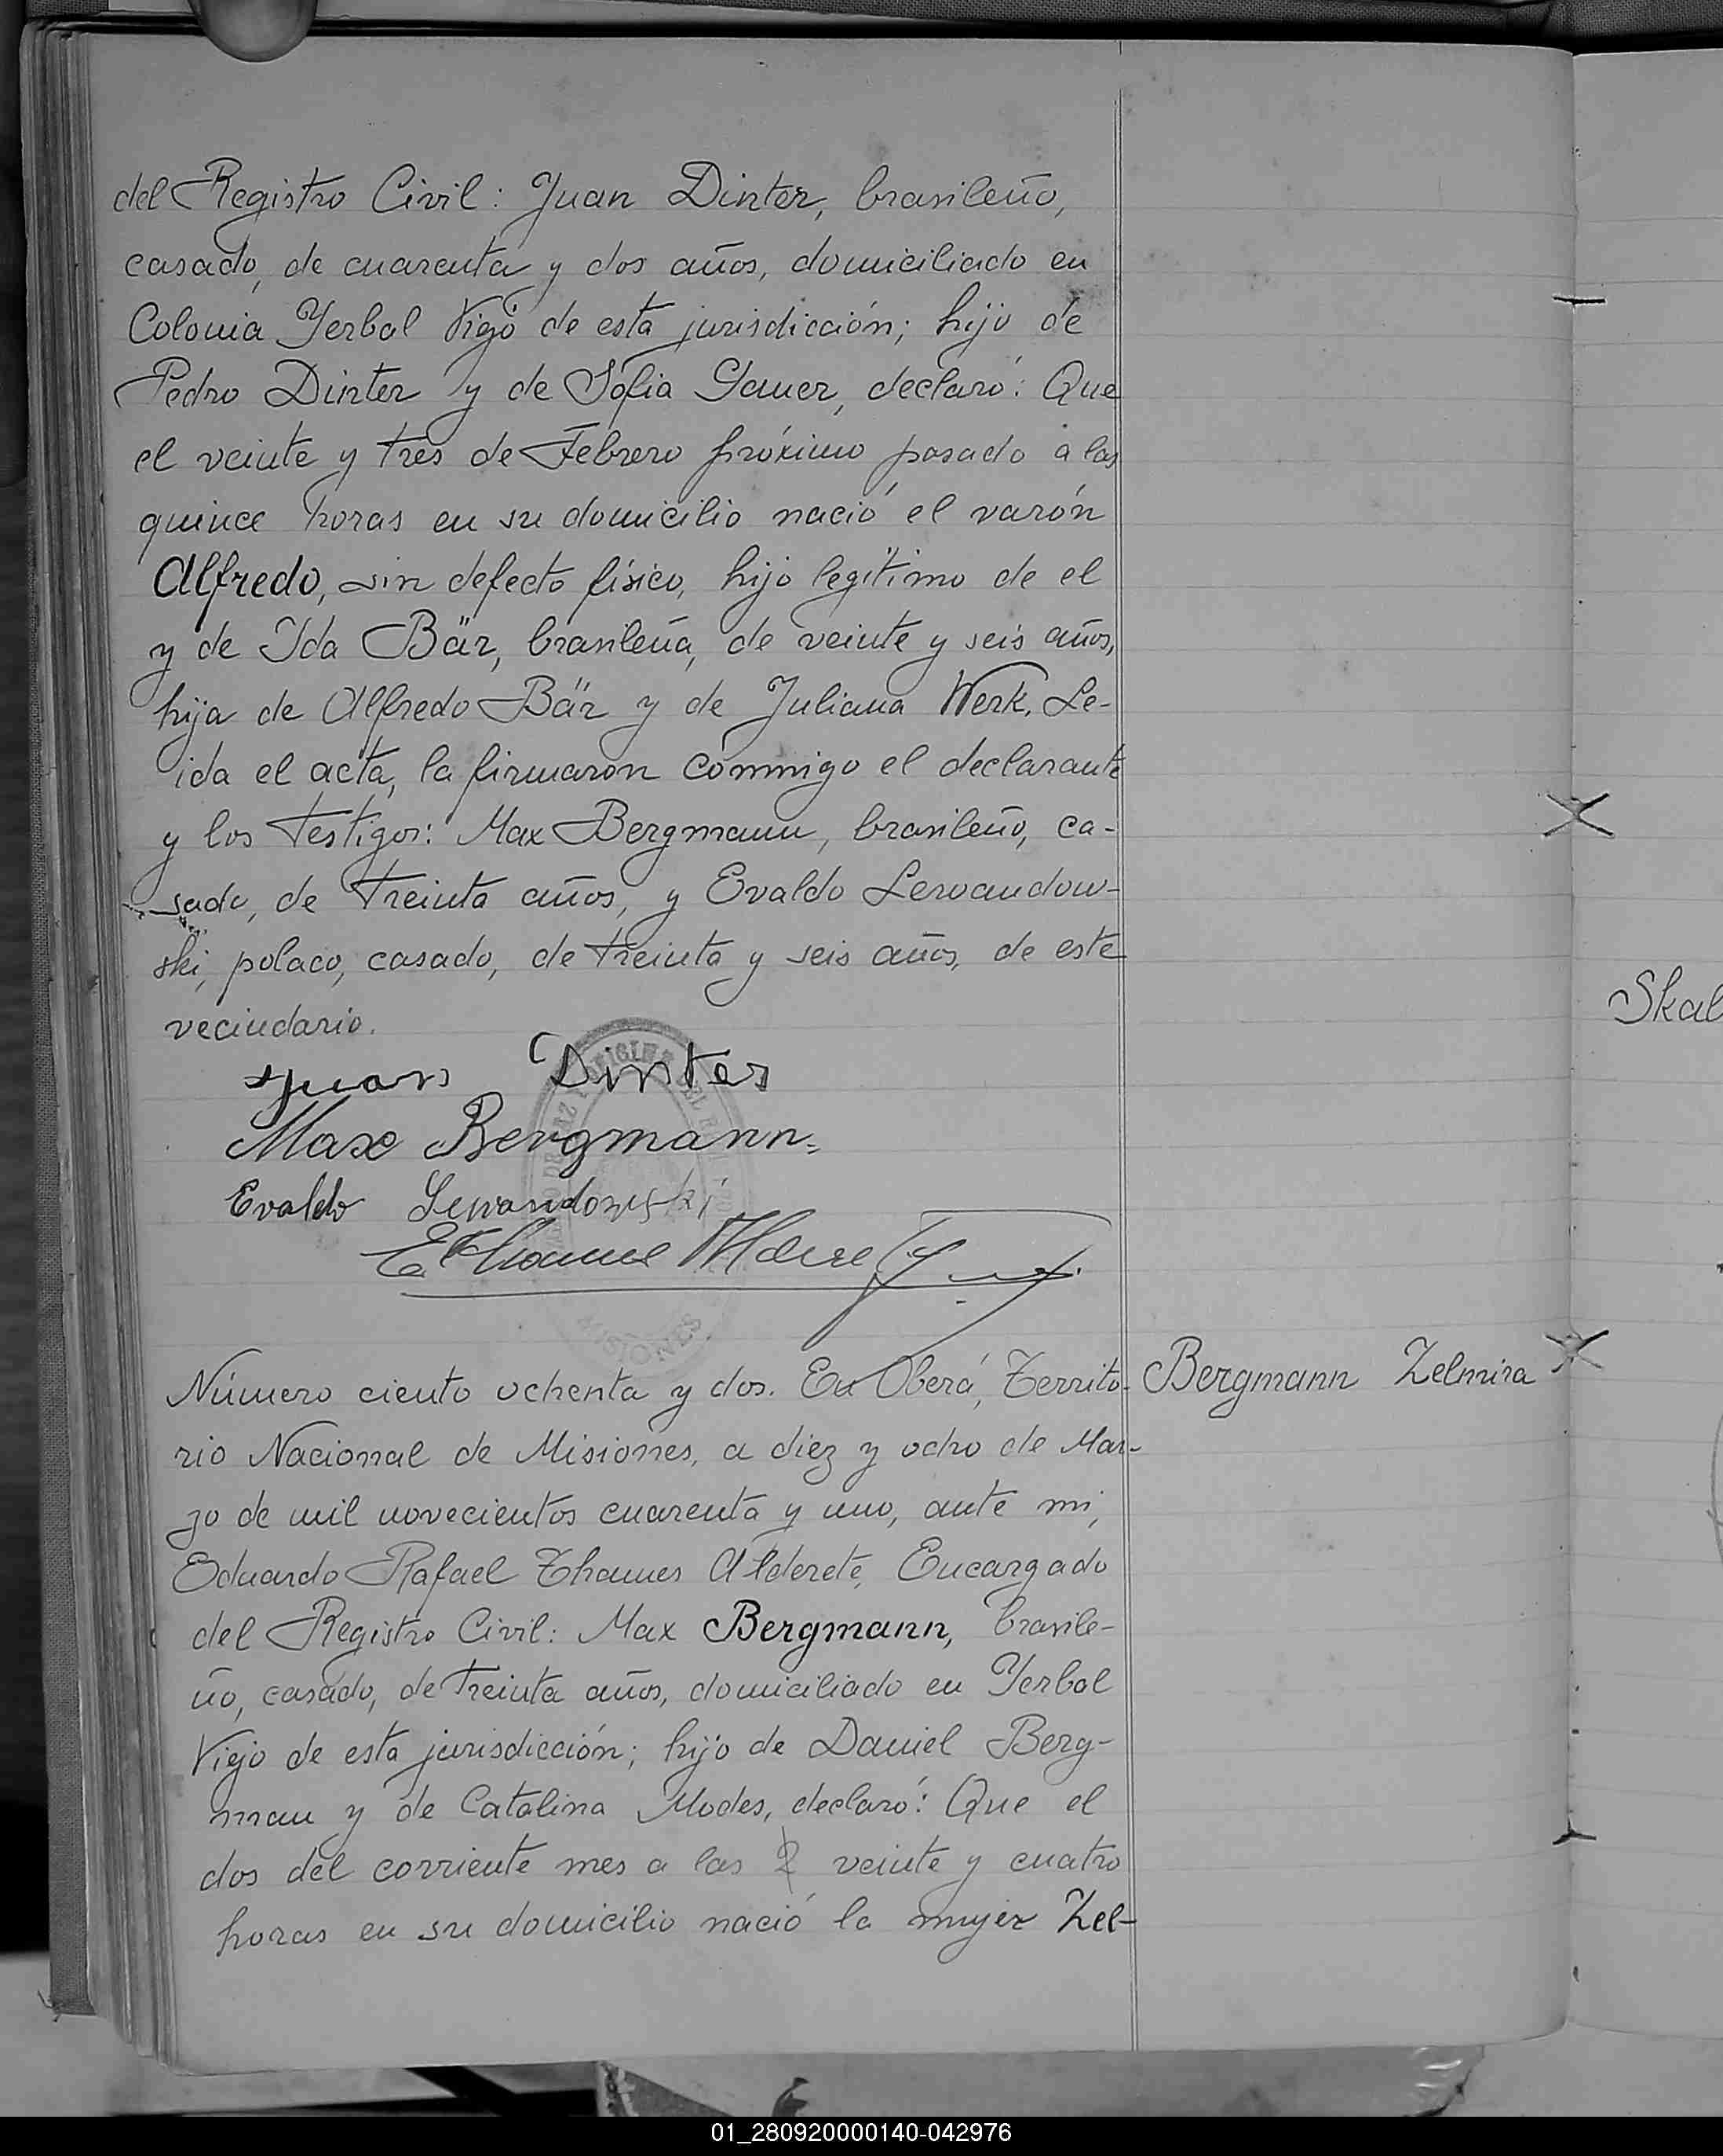 del Registro Civil: Juan Dinter, brasileño,
casado, de cuarenta y dos años, domiciliado en
Colonia Yerbal Viejo de esta jurisdicción; hijo de
Pedro Dinter y de Sofia Gauer, declaró: Que
el veinte y tres de Febrero próximo pasado a las
quince horas en su domicilio nació el varón
Alfredo, sin defecto físico, hijo legítimo de el
y de Ida Bär, brasileña, de veinte y seis años,
hija de Alfredo Bär y de Juliana Werk. Le-
ida el acta, la firmaron conmigo el declarante
y los testigos: Max Bergmann, brasileño, ca-
sado, de treinta años, y Evaldo Lewandow-
ski, polaco, casado, de treinta y seis años, de este
vecindario.
Juan Dinter
Max Bergmann.
Evaldo Lewandowski
MISIONES
Número ciento ochenta y dos. En Oberá, Territo-
Bergmann Zelmira
rio Nacional de Misiones, a diez y ocho de Mar-
zo de mil novecientos cuarenta y uno, ante mi,
Eduardo Rafael Thames Alderete, Encargado
del Registro Civil: Max Bergmann, brasile-
ño, casado, de treinta años, domiciliado en Yerbal
Viejo de esta jurisdicción; hijo de Daniel Berg-
man y de Catalina Modes, declaró: Que el
dos del corriente mes a las veinte y cuatro
horas en su domicilio nació la mujer Zel-
Skal
01_280920000140-042976